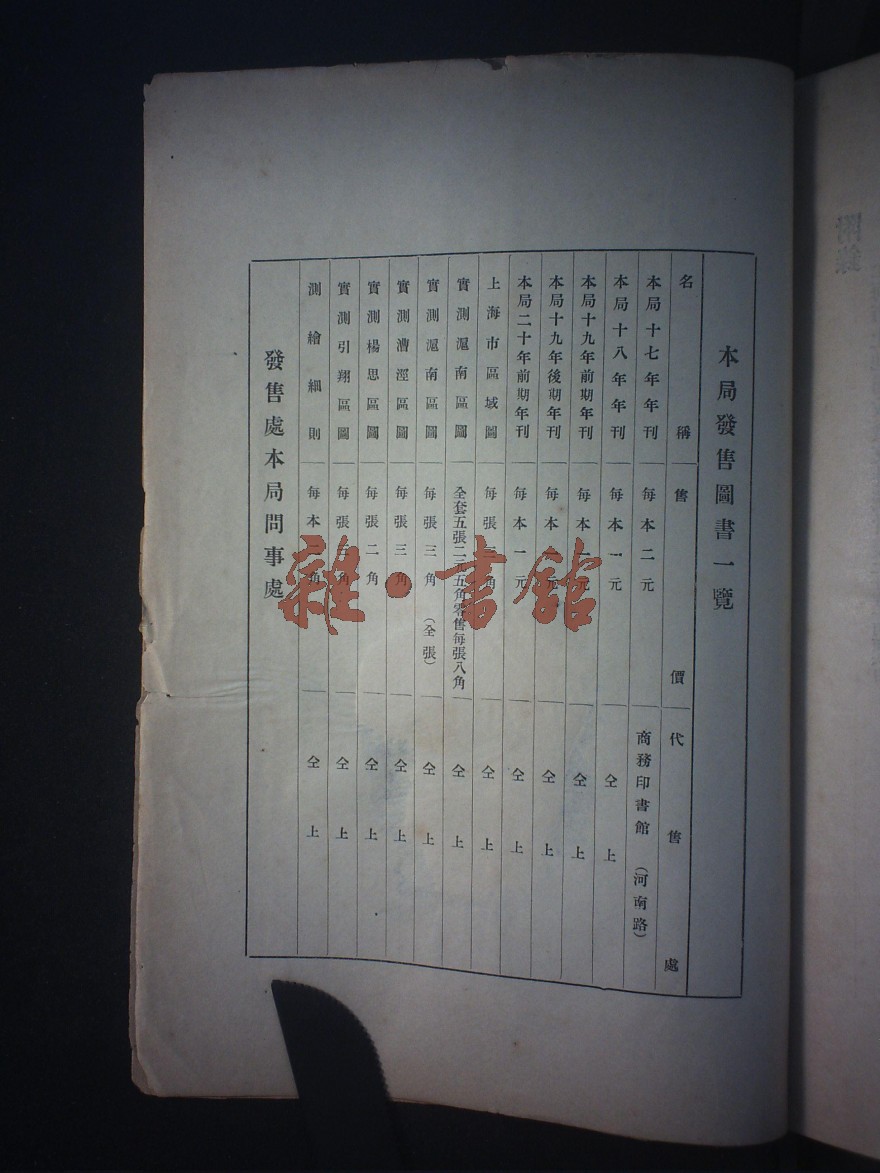 本局發售圖書一覽
名稱 售價 代售處
本局十七年年刊 每本二元 商務印書館（河南路）
本局十八年年刊 每本一元 仝上
本局十九年前期年刊 每本一元 仝上
本局十九年後期年刊 每本一元 仝上
本局二十年前期年刊 每本一元 仝上
上海市區域圖 每張 角 仝上
實測滬南區圖 全套五張二元五角零售每張八角 仝上
實測滬南區圖 每張三角（全張） 仝上
實測漕涇區圖 每張三角 仝上
實測楊思區圖 每張二角 仝上
實測引翔區圖 每張三角 仝上
測繪細則 每本 角 仝上
發售處本局問事處
雜·書館
附錄